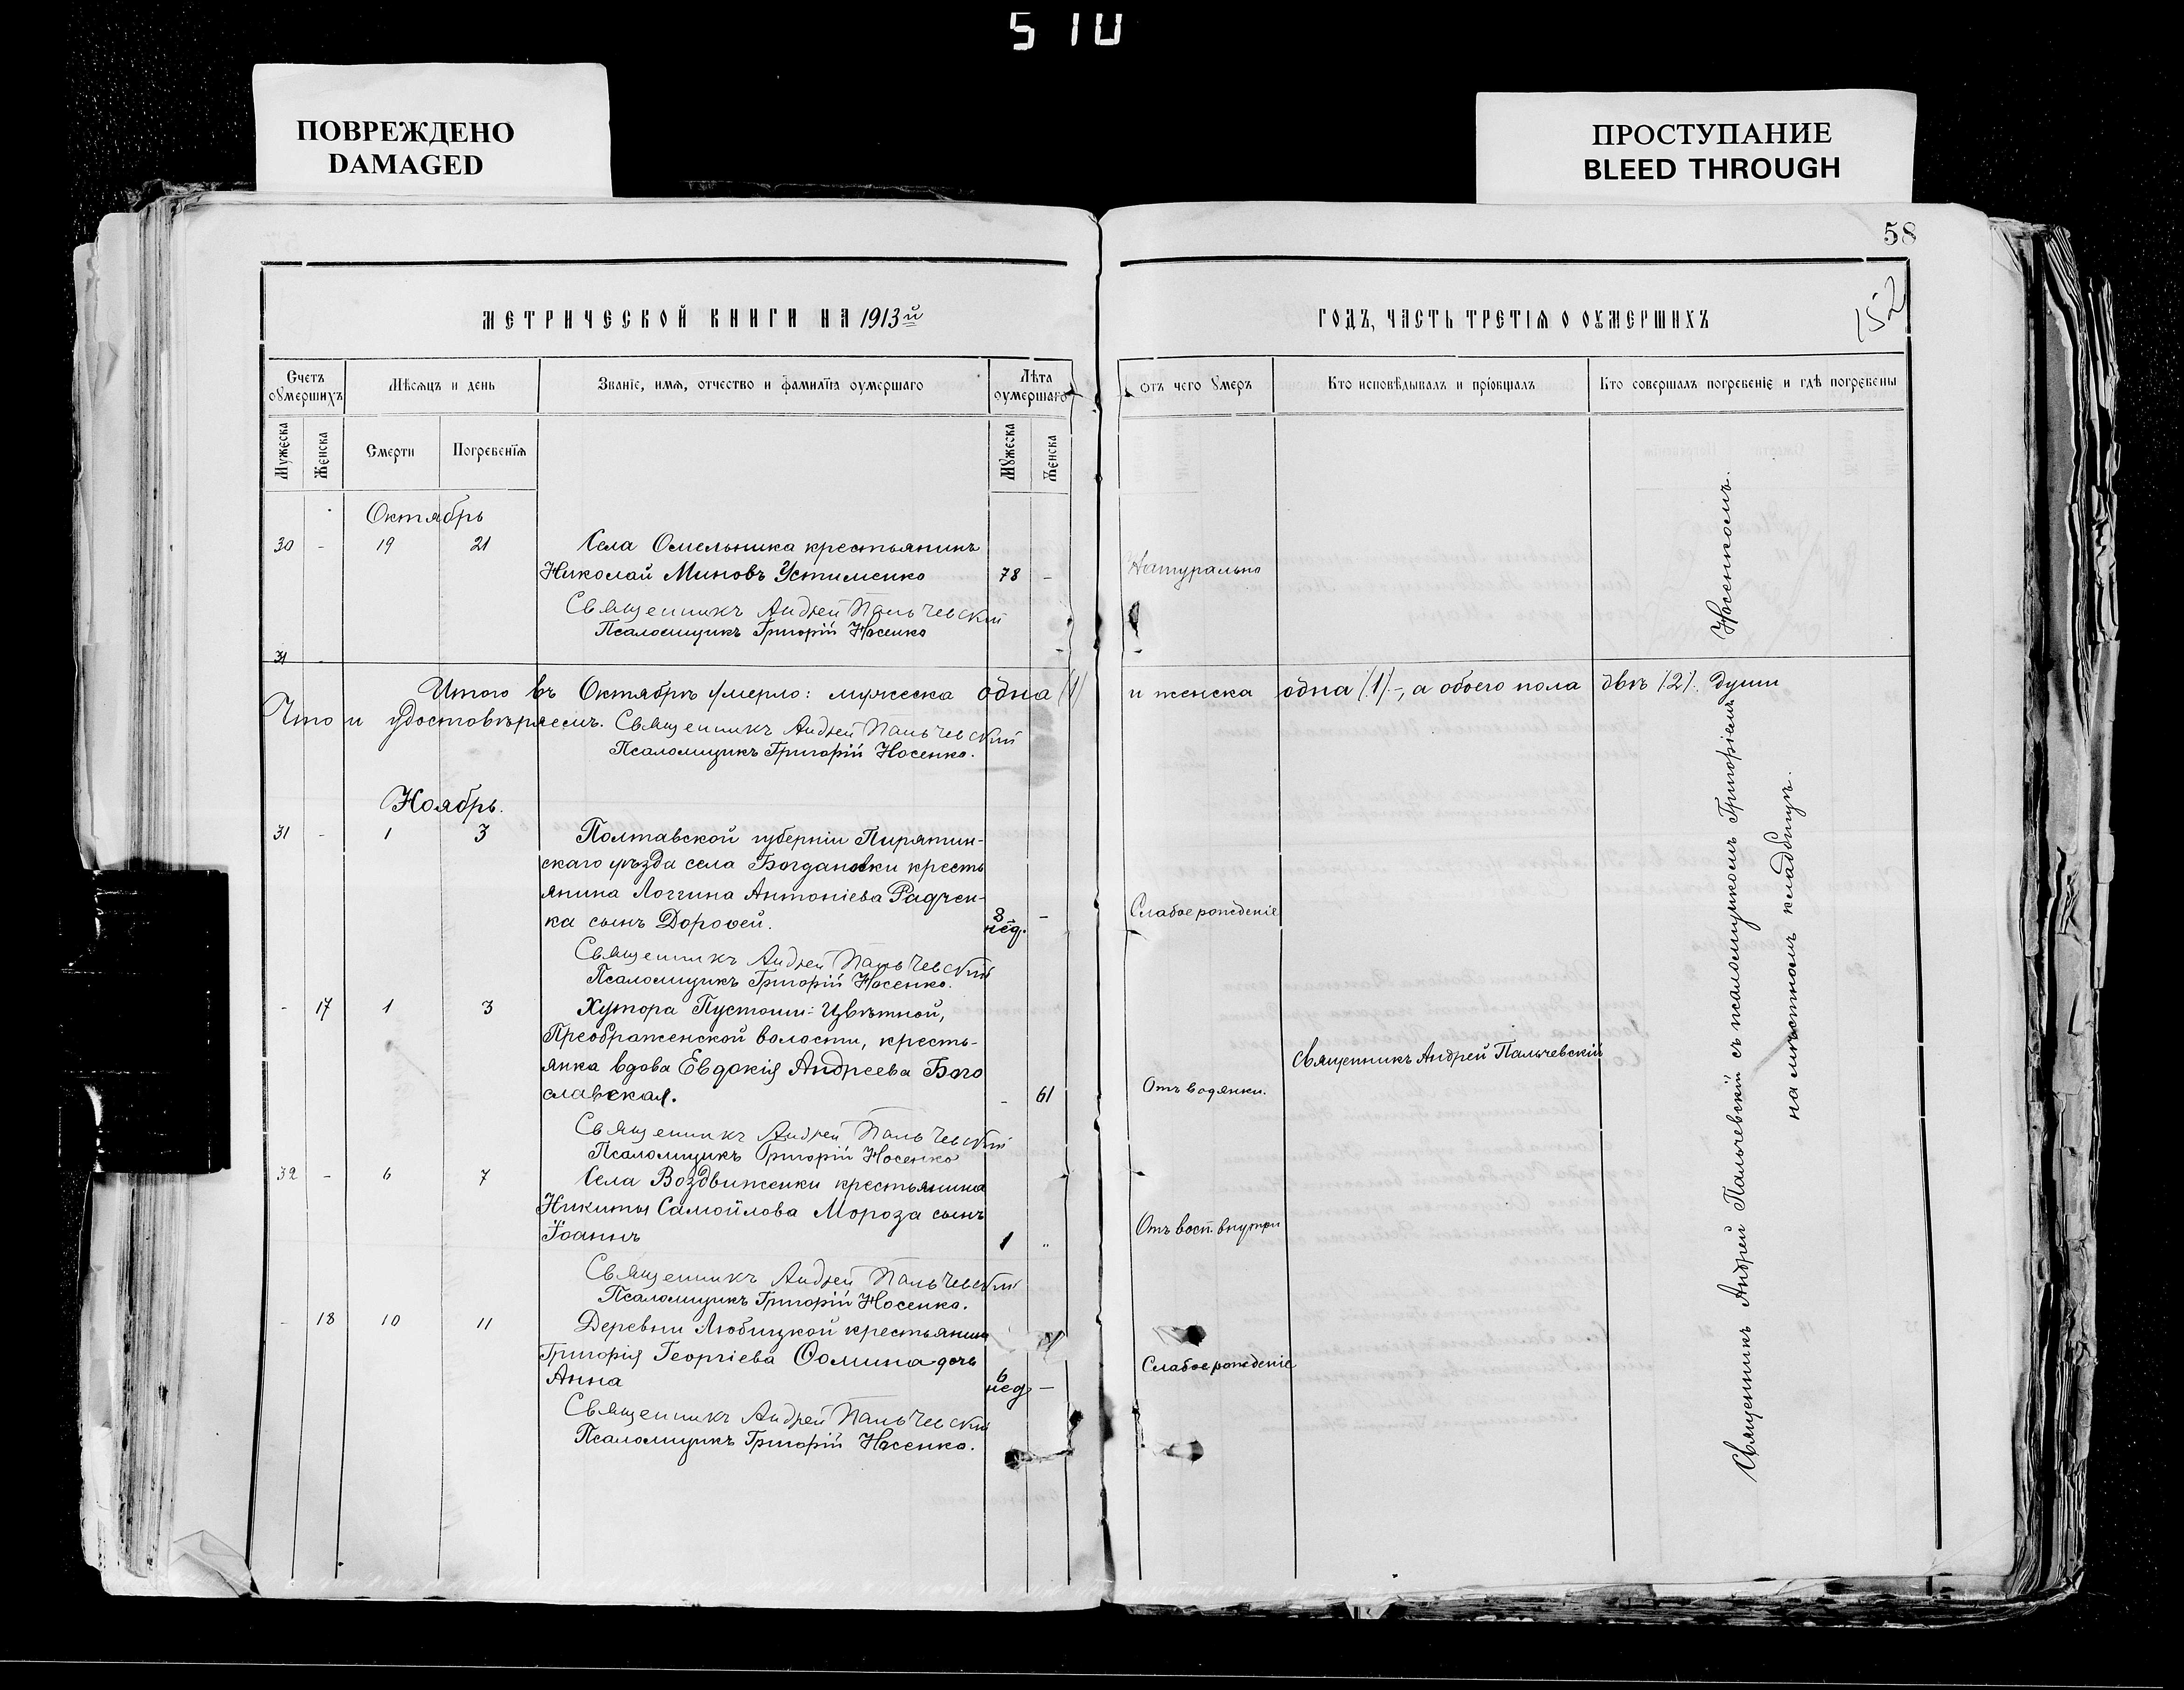 510
ПОВРЕЖДЕНО
DAMAGED
ПРОСТУПАНИЕ
BLEED THROUGH
58
152
МЕТРИЧЕСКОЙ КНИГИ НА 1913й
ГОДЪ, ЧАСТЬ ТРЕТІѦ О ОУМЕРШИХЪ
Счетъ оумершихъ
Мѣсѧцъ и день
Званіе, имѧ, отчество и фамиліѧ оумершаго
Лѣта оумершаго
Отъ чего оумеръ
Кто исповѣдывалъ и пріобщалъ
Кто совершалъ погребеніе и гдѣ погребены
Мужеска
Женска
Смерти
Погребеніѧ
Мужеска
Женска
Октябрь
30 - 19 21 Села Омельника крестьянинъ
Николай Миновъ Устименко 78 - Натурально
Священникъ Андрей Пальчевскій
Псаломщикъ Григорій Носенко
31 -
Итого въ Октябрѣ умерло: мужеска одна (1) и женска одна (1) -, а обоего пола двѣ (2). души
Что и удостовѣряемъ. Священникъ Андрей Пальчевскій
Псаломщикъ Григорій Носенко.
Ноябрь.
31 - 1 3 Полтавской губерніи Пирятин-
скаго уѣзда села Богдановки кресть
янина Логгина Антоніева Радчен-
ка сынъ Дороѳей. 8 нед. - Слабое рожденіе
Священникъ Андрей Пальчевскій
Псаломщикъ Григорій Носенко.
- 17 1 3 Хутора Пустоши-Цвѣтной,
Преображенской волости, кресть-
янка вдова Евдокія Андреева Бого
славская. - 61 Отъ водянки. Священникъ Андрей Пальчевскій
Священникъ Андрей Пальчевскій
Псаломщикъ Григорій Носенко
32 - 6 7 Села Воздвиженки крестьянина
Никиты Самойлова Мороза сынъ
Іоаннъ 1 " Отъ восп. внутри
Священникъ Андрей Пальчевскій
Псаломщикъ Григорій Носенко.
- 18 10 11 Деревни Любицкой крестьянина
Григорія Георгіева Ѳомина дочь
Анна 6 нед - Слабое рожденіе
Священникъ Андрей Пальчевскій
Псаломщикъ Григорій Носенко.
Священникъ Андрей Пальчевскій съ псаломщикомъ Григоріемъ Носенкомъ.
на мѣстномъ кладбищѣ.